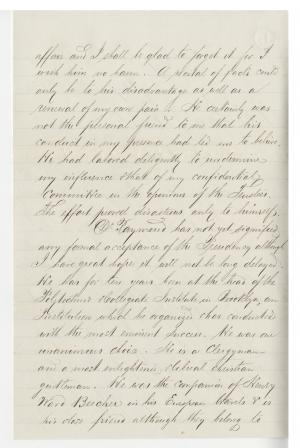 affair and I shall be glad to forget it for I
wish him no harm. A recital of facts could
only be to his disadvantage as well as a
renewal of my own pain. He certainly was
not the personal friend to me that his
conduct in my presence had led me to believe
He had labored diligently to undermine
my influence & that of my confidential
Committee in the opinions of the Trustees.
The effort proved disastrous only to himself.
Dr Raymond has not yet signified
any formal acceptance of the Presidency although
I have great hopes it will not be long delayed.
He has for ten years been at the head of the
Polytechnic Collegiate Institute in Brooklyn, an
Institution which he organized & has conducted
with the most eminent success. He was our
unanimous choice. He is a Clergyman
and a most enlightened & liberal christian
gentleman. He was the companion of Henry
Ward Beecher in his European travels & is
his close friend although they belong to